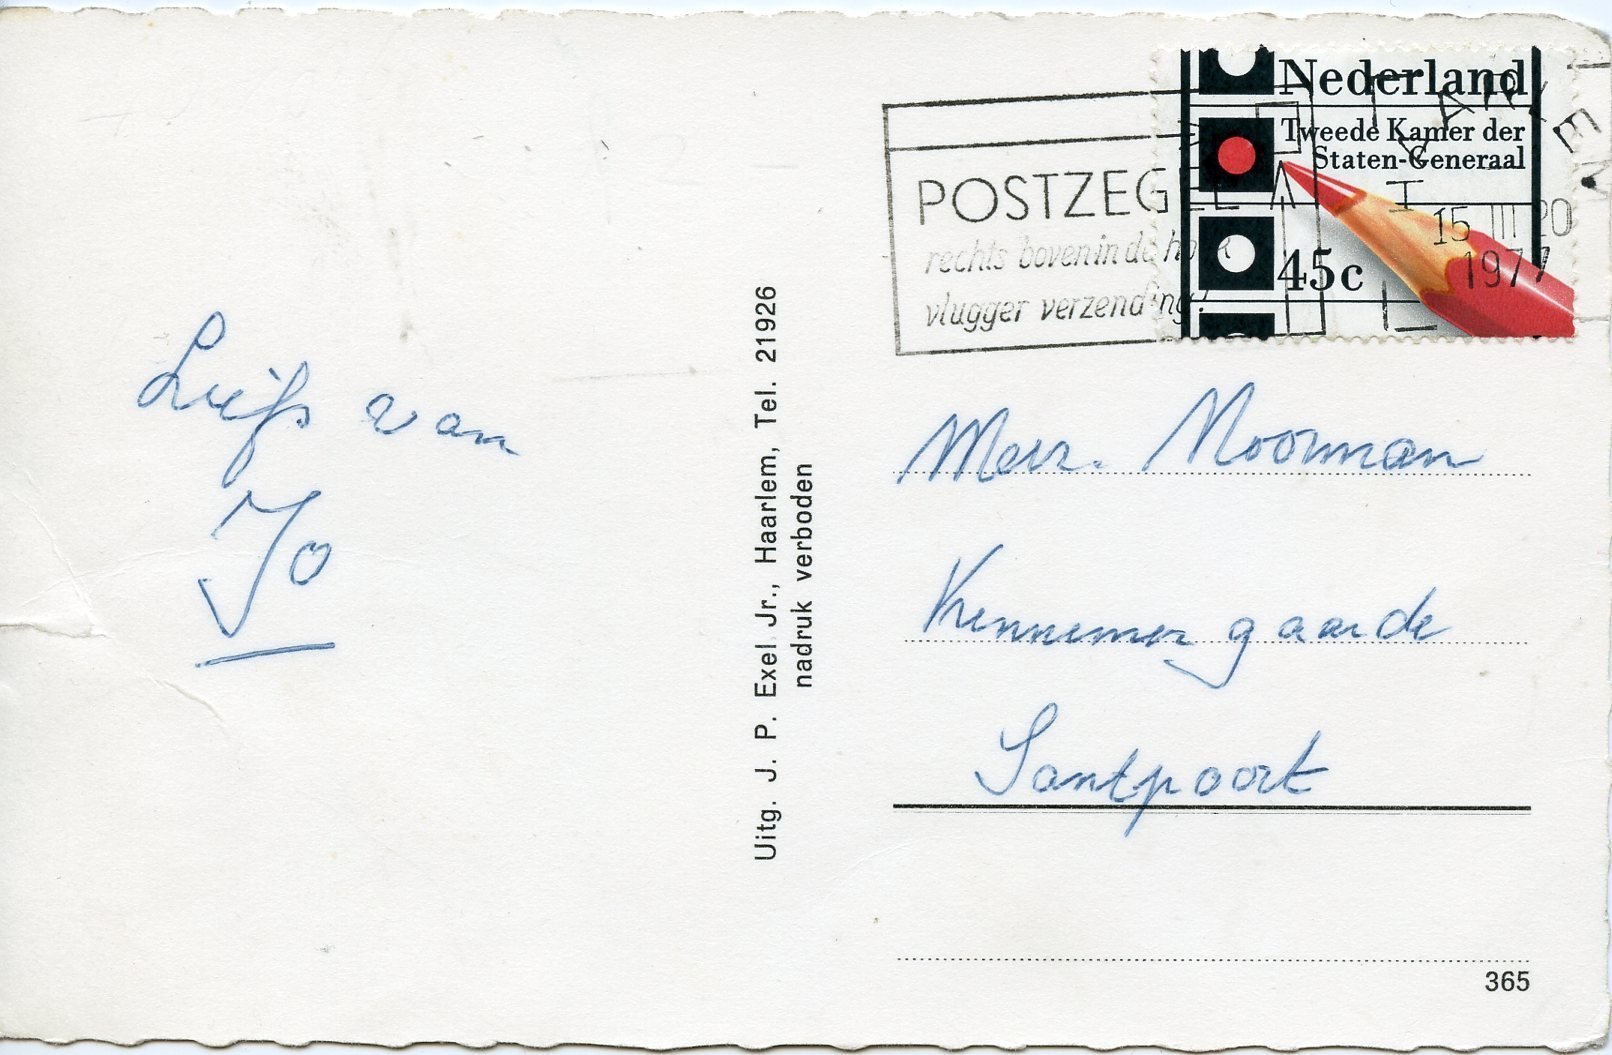 Liefs van
Jo
Uitg. J. P. Exel Jr., Haarlem, Tel. 21926
nadruk verboden
POSTZEGEL
rechts boven in de hoek
vlugger verzending!
HAARLEM
15 III 20
1977
Nederland
Tweede Kamer der
Staten-Generaal
45c
Mevr. Moorman
Kennemergaarde
Santpoort
365